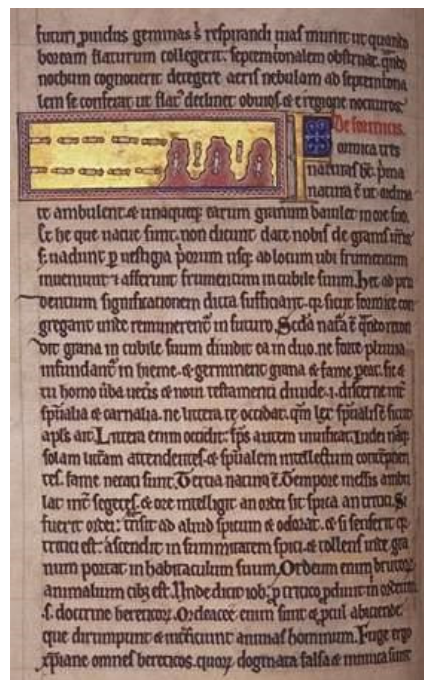 futuri prouidus geminas sibi respirandi uias munit ut quando
boream flaturum collegerit. septemtrionalem obstruat. quando
nothum cognouerit detegere aeris nebulam ad septemtrona
lem se conferat ut flatus declinet obuios. & e regione nocituros.
De formicis.
Formica tres
naturas habet. prima
natura est ut ordina
te ambulent. & unaqueque earum granum baiulet in ore suo.
que uacue sunt. non dicunt date nobis de granis
uadunt per uestigia usque ad locum ubi frumentum
inueniunt. & afferunt frumentum in cubile suum. Hec ad pru
dentium significationem dicta sufficiant. qui sicut formice con
gregant unde remunerentur in futuro. Secunda natura est quando recon
dit grana in cubile suum diuidit ea in duo. ne forte pluuia
infundantur in hieme. & germinent grana & fame pereat. sic &
tu homo uerba ueteris & noui testamenti diuide. i. discerne inter
spiritalia & carnalia. ne littera te occidat. quoniam lex spiritalis est sicut
apostolus ait. Littera enim occidit. spiritus autem uiuificat. Iudei namque
solam litteram attendentes. & spiritalem intellectum contempnen
tes. fame necati sunt. Tercia natura est. Tempore messis ambu
lat inter segetes. & ore intelligit an ordei sit spica an tritici. Si
fuerit ordei. transit ad aliud spicum & odorat. & si senserit quia
tritici est. ascendit in summitatem spici. & tollens inde gra
num portat in habitaculum suum. Ordeum enim brutorum
animalium cibus est. Unde dicit iob. pro tritico prodiunt in ordeum
.s. doctrine hereticorum. Ordeacee enim sunt & procul abiciende
que dirumpunt & interficiunt animas hominum. Fuge ergo
xpiane omnes hereticos. quorum dogmata falsa & inimica sunt